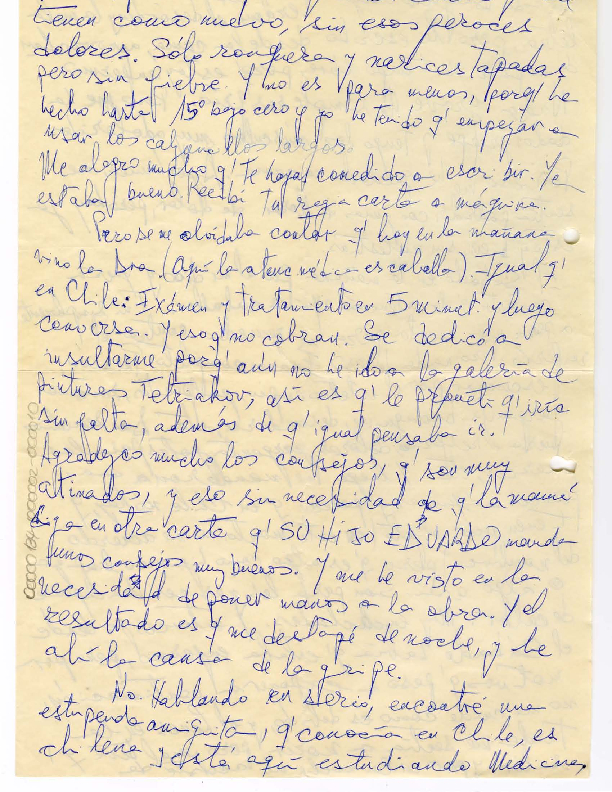 tienen como nuevo, sin esos peroces
dolores. Sólo ronquera y narices tapadas
pero sin fiebre. Y no es para menos, porq' ha
hecho hasta 15° bajo cero y yo he tenido q' empezar a
usar los calzoncillos largos.
Me alegro mucho q' te hayas comedido a escribir. Ya
estaba bueno. Recibí tu regia carta a máquina.
Pero se me olvidaba contar q' hoy en la mañana
vino la Dra. (Aquí la atenc. médica es caballa). Igual q'
en Chile: Exámen y tratamiento en 5 minut. y luego
conversa. Y eso q' no cobran. Se dedicó a
insultarme porq' aún no he ido a la galería de
pinturas Tetriakov, así es q' le prometí q' iría
sin falta, además de q' igual pensaba ir.
Agradezco mucho los consejos, q' son muy
atinados, y eso sin necesidad de q' la mamá
diga en otra carta q' SU HIJO EDUARDO manda
unos consejos muy buenos. Y me he visto en la
necesidad de poner manos a la obra. Y el
resultado es q' me destapé de noche, y he
ahí la causa de la gripe.
No. Hablando en serio, encontré una
estupenda amiguita, q' conocía en Chile, es
chilena y está aquí estudiando Medicina,